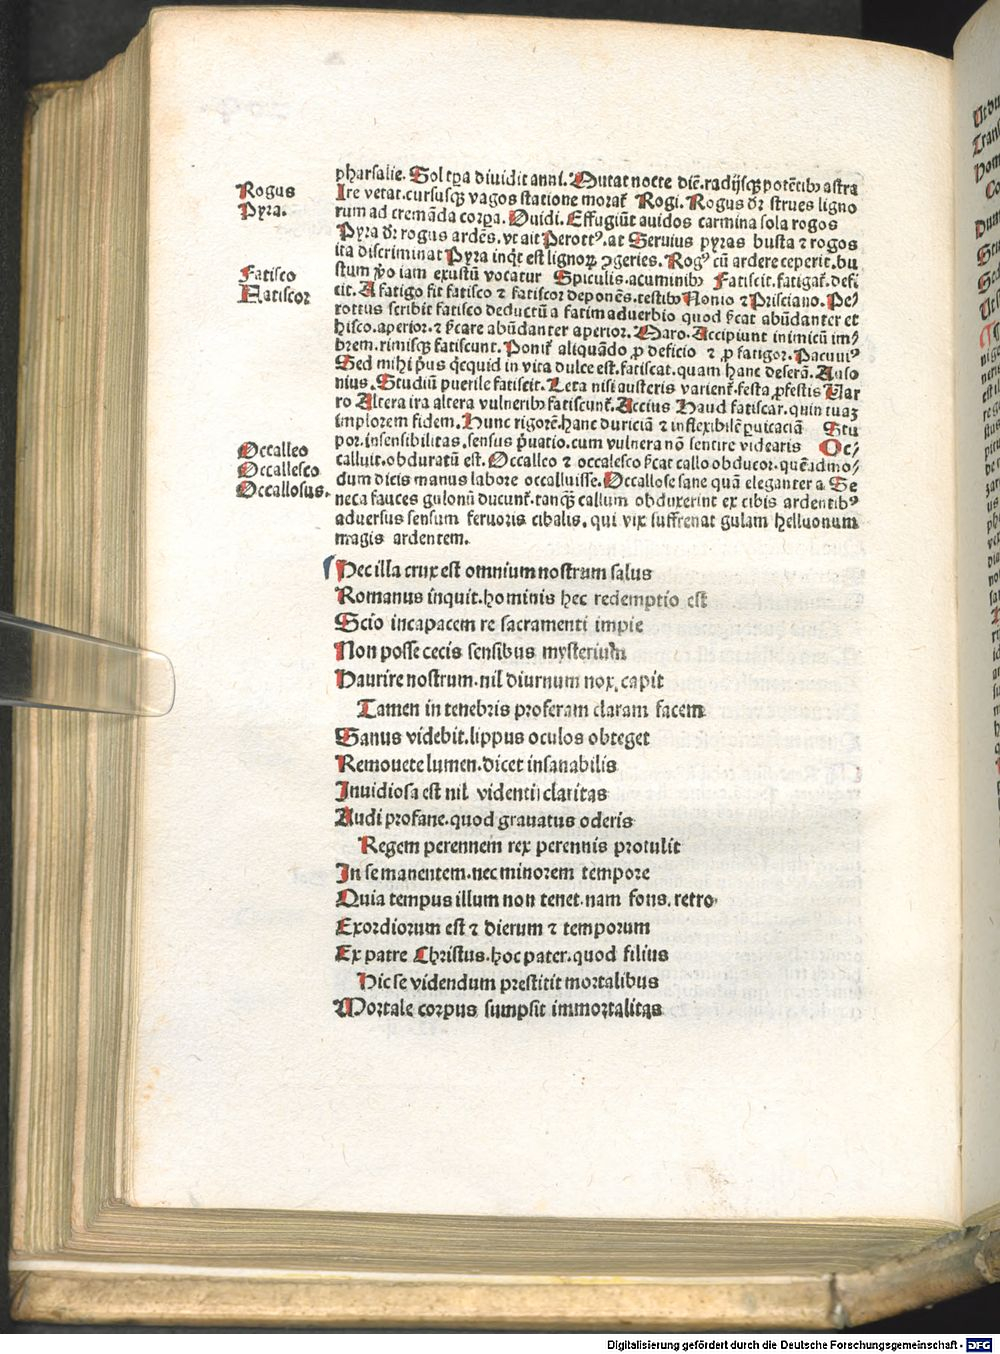 Rogus
Pyra.
Fatisco
Fatiscor
Occalleo
Occallesco
Occallosus.
pharsalie. Sol tꝑa diuidit anni. Mutat nocte diē. radijsqꝫ potētibꝫ astra
Ire vetat. cursusqꝫ vagos statione morat᷑ Rogi. Rogus dr̄ strues ligno
rum ad cremāda corꝑa. Ouidi. Effugiūt auidos carmina sola rogos
Pyra dr̄ rogus ardēs. vt ait Perottꝰ. at Seruius pyras busta ⁊ rogos
ita discriminat Pyra inqͥt est lignoꝝ ꝯgeries. Rogꝰ cū ardere ceperit. bu
stum ꝟo iam exustū vocatur Spiculis. acuminibꝫ Fatiscit. fatigat᷑. defi
cit. A fatigo fit fatisco ⁊ fatiscor deponēs. testibꝫ Nonio ⁊ Prisciano. Pe/
rottus scribit fatisco deductū a fatim aduerbio quod sͥcat abūdanter et
hisco. aperior. ⁊ sͥcare abūdanter aperior. Maro. Accipiunt inimicū im/
brem. rimisqꝫ fatiscunt. Ponit᷑ aliquādo ꝓ deficio ⁊ ꝓ fatigor. Pacuuiꝰ
Sed mihi pͥus qͥcquid in vita dulce est. fatiscat. quam hanc deserā. Auso
nius. Studiū puerile fatiscit. Leta nisi austeris varient᷑. festa ꝓfestis Var
ro Altera ira altera vulneribꝫ fatiscunt᷑. Accius Haud fatiscar. quin tuaꝫ
implorem fidem. Hunc rigorē. hanc duriciā ⁊ inflexibilē ꝑuicaciā Stu
por. insensibilitas. sensus pͥuatio. cum vulnera nō sentire videaris Oc/
calluit. obduratū est. Occalleo ⁊ occalesco sͥcat callo obducor. quēadmo/
dum dicis manus labore occalluisse. Occallose sane quā eleganter a Se
neca fauces gulonū ducunt᷑. tanqͣꝫ callum obduxerint ex cibis ardentibꝰ
aduersus sensum feruoris cibalis. qui vix suffrenat gulam helluonum
magis ardentem.
Hec illa crux est omnium nostrum salus
Romanus inquit. hominis hec redemptio est
Scio incapacem re sacramenti impie
Non posse cecis sensibus mysterium
Haurire nostrum. nil diurnum nox capit
Tamen in tenebris proferam claram facem
Sanus videbit. lippus oculos obteget
Remouete lumen. dicet insanabilis
Inuidiosa est nil videnti claritas
Audi profane. quod grauatus oderis
Regem perennem rex perennis protulit
In se manentem. nec minorem tempore
Quia tempus illum non tenet. nam fons. retro
Exordiorum est ⁊ dierum ⁊ temporum
Ex patre Christus. hoc pater. quod filius
Hic se videndum prestitit mortalibus
Mortale corpus sumpsit immortalitas
Digitalisierung gefördert durch die Deutsche Forschungsgemeinschaft - DFG